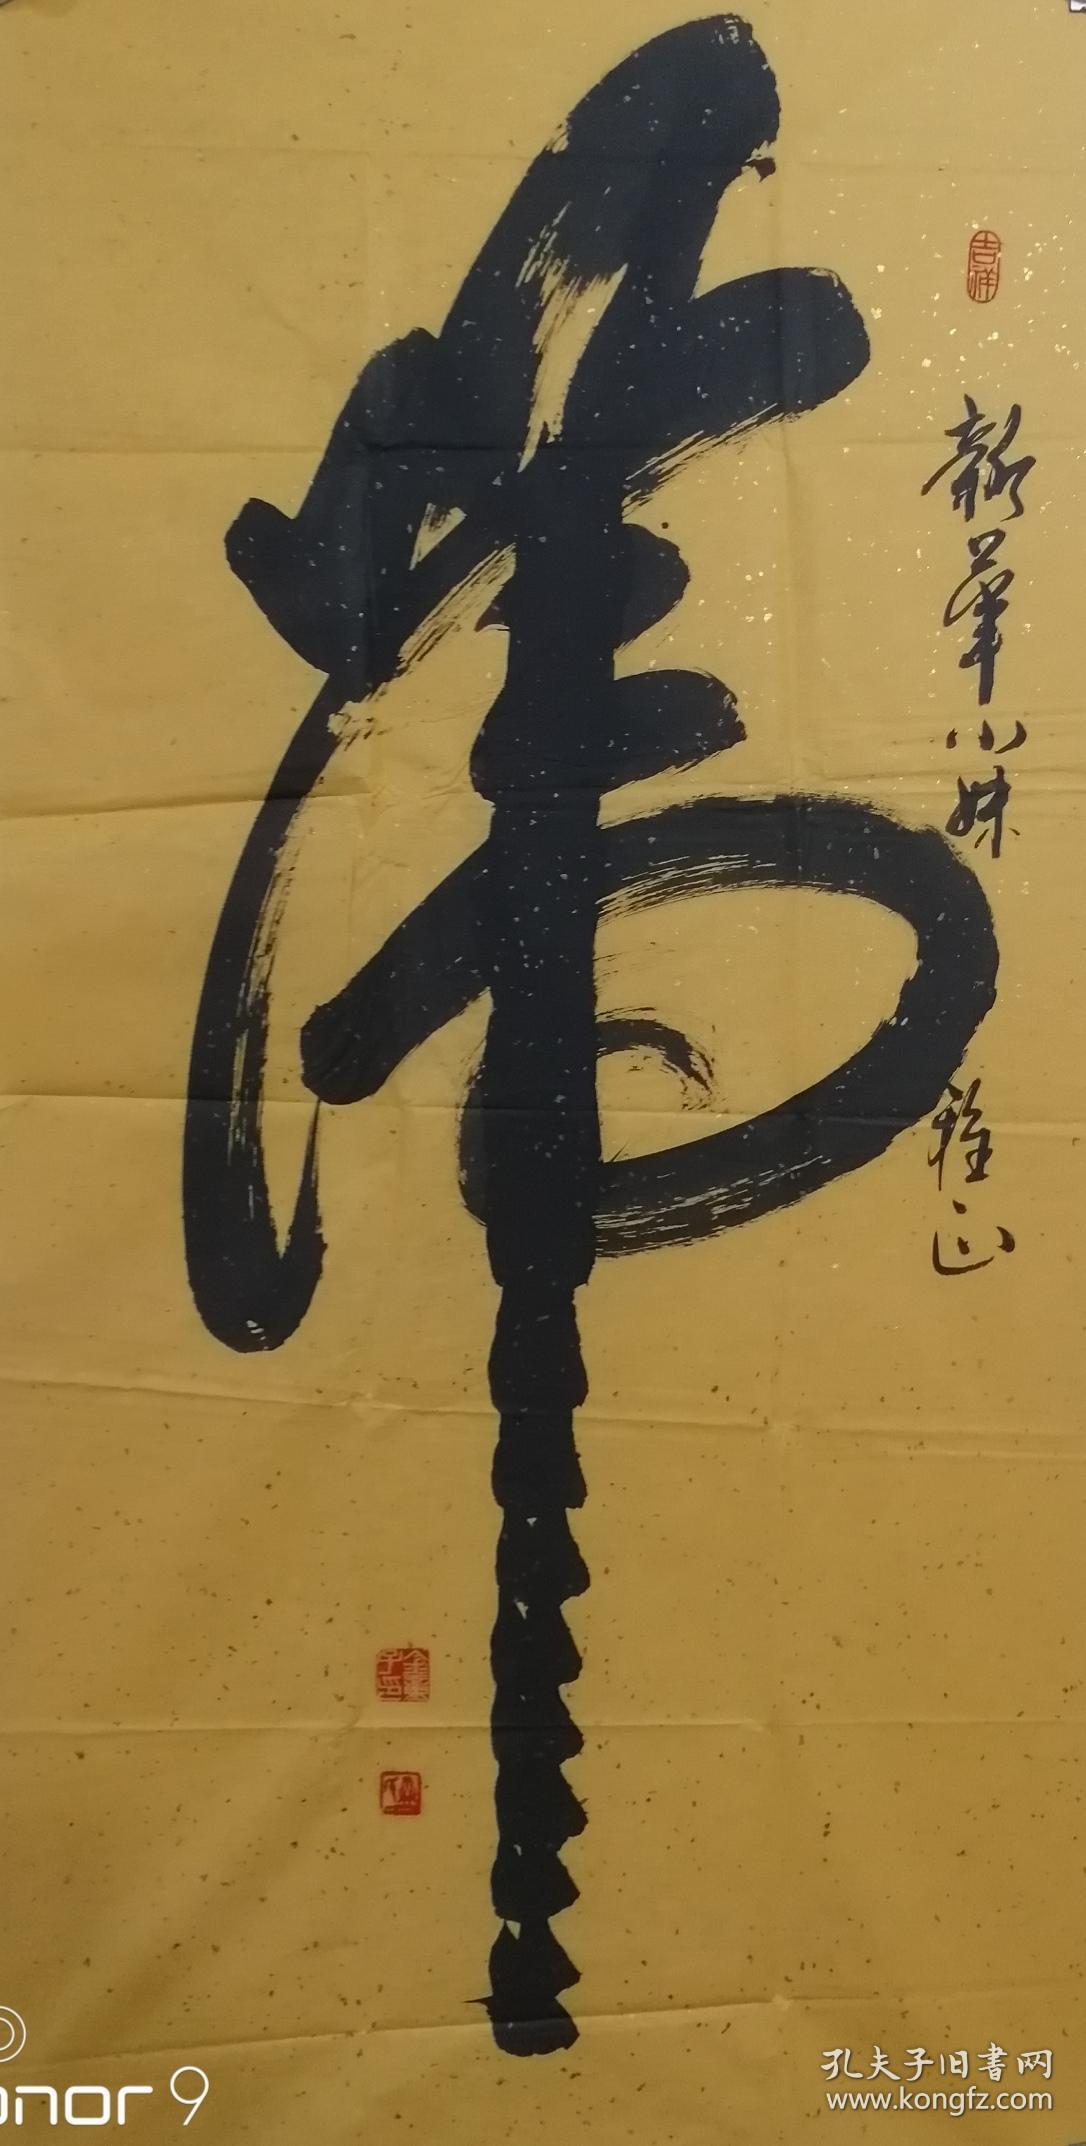 虎
吉祥
新華小妹 雅正
onor 9
孔夫子旧書网
www.kongfz.com